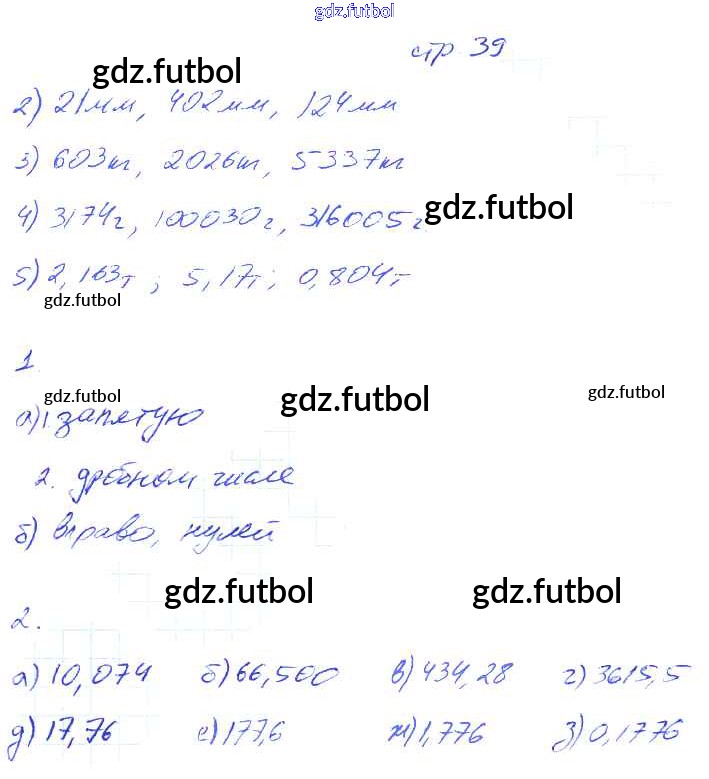 gdz.futbol
стр 39
gdz.futbol
2) 21мм, 402мм, 124мм
3) 603кг, 2026кг, 5337кг
4) 3174г, 100030г, 316005г
gdz.futbol
5) 2,163т; 5,17т; 0,804т
gdz.futbol
1
gdz.futbol gdz.futbol gdz.futbol
а) 1. запятую
2. дробном числе
б) вправо, нулей
gdz.futbol gdz.futbol
2.
а) 10,074 б) 66,500 в) 434,28 г) 3615,5
д) 17,76 е) 177,6 ж) 1,776 з) 0,1776